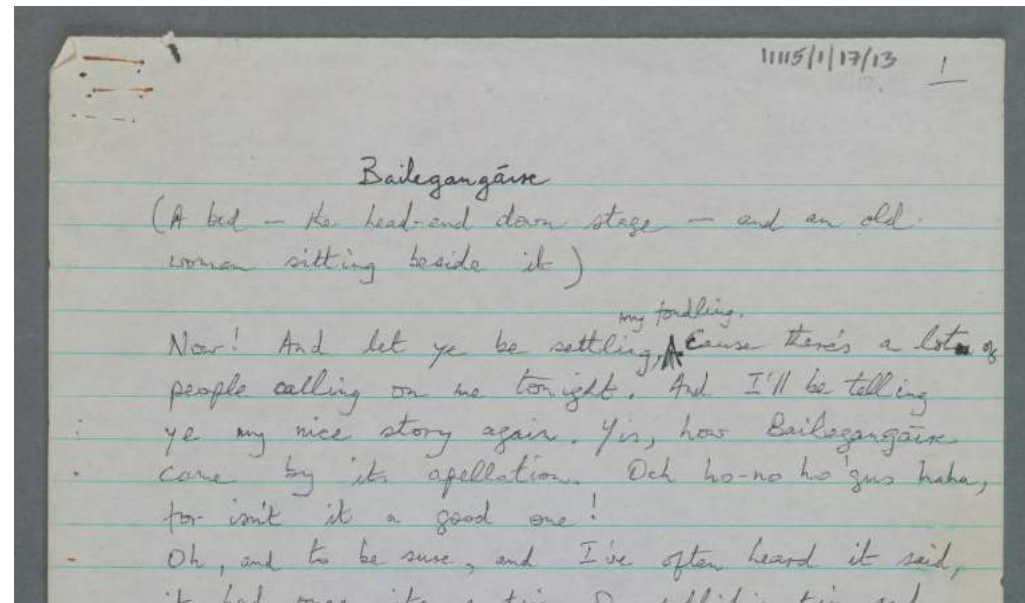 11115/1/17/13 1
Bailegangáire
(A bed — the head-end down stage — and an old
woman sitting beside it)
my fondling.
Now! And let ye be settling, 'Cause there's a lot of
people calling on me tonight. And I'll be telling
ye my nice story again. Yis, how Bailegangáire
came by its apellation. Och ho-no ho 'gus haha,
for isn't it a good one!
Oh, and to be sure, and I've often heard it said,
it had once its